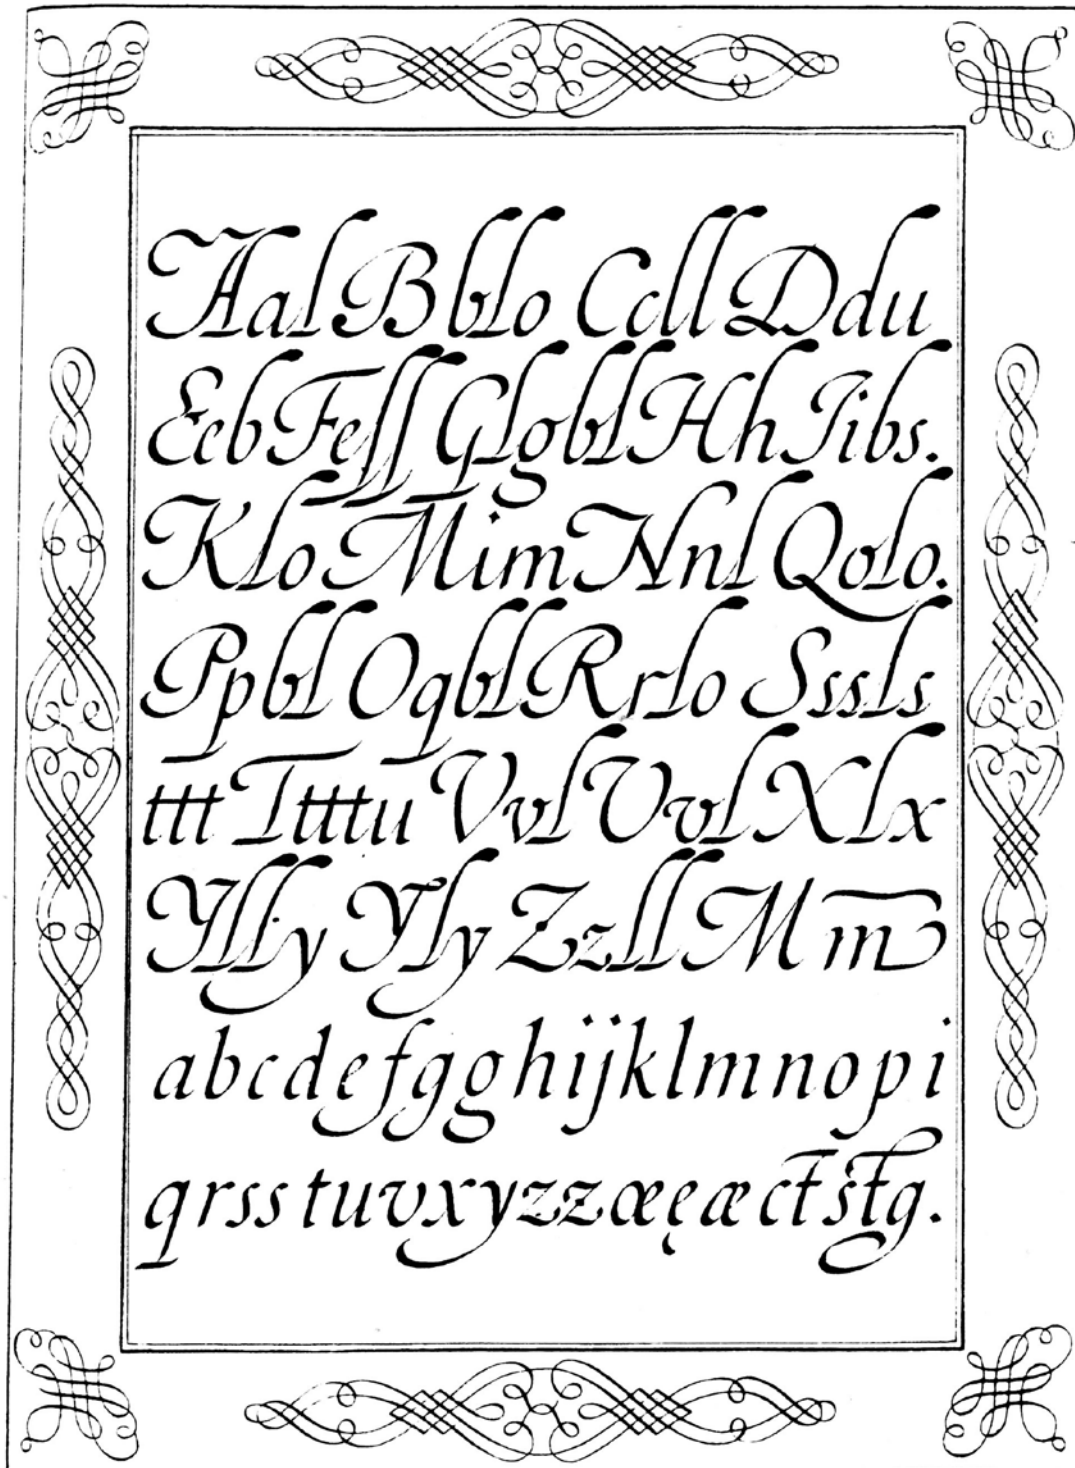 Aal Bblo Ccll Ddu
Eeb Feſſ Glgbl Hh Iibs.
Klo Mim Nnl Qolo.
Ppbl Oqbl Rrlo Sssls
ttt Ttttu Vvl Uvl Xlx
Ylly Yly Zzll M m
abcdefgghijklmnopi
qrsstuvxyzzœęæctstg.